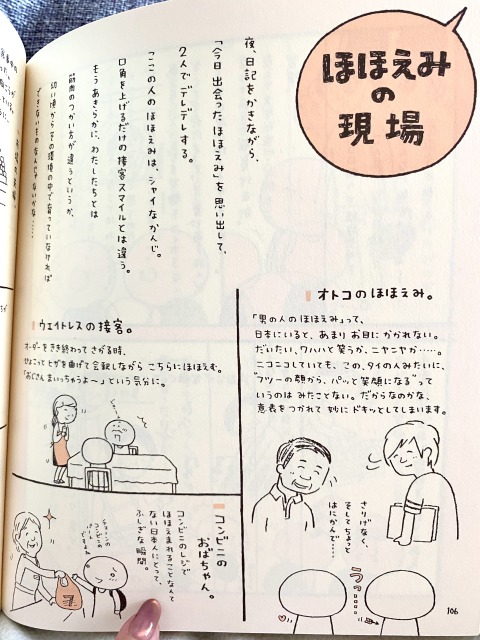 ほほえみ
の
現場
夜、日記をかきながら、
「今日出会ったほほえみ」を思い出して、
2人でデレデレする。
「ここの人のほほえみは、シャイなかんじ。
口角を上げるだけの接客スマイルとは違う。
もうあきらかに、わたしたちとは
筋肉のつかい方が違うというか、
幼い頃からその環境の中で育っていなければ
できないものなんじゃないかな……
オトコのほほえみ。
「男の人のほほえみ」って、
日本にいると、あまりお目にかかれない。
だいたい、ワハハと笑うか、ニヤニヤか……。
ニコニコしていても、この、タイの人みたいに、
"フツーの顔から、パッと笑顔になる"って
いうのはみたことない。だからなのかな、
意表をつかれて妙にドキッとしてしまいます。
さりげなく、
そしてちょっと
はにかんで…
うっ…
ウェイトレスの接客。
オーダーをきき終わってさがる時、
ひょこっとヒザを曲げて会釈しながらこちらにほほえむ。
「おじさんまいっちゃうよ〜」という気分に。
コンビニの
おばちゃん。
コンビニのレジで
ほほえまれることなんて
ない日本人にとって、
ふしぎな瞬間。
7
106